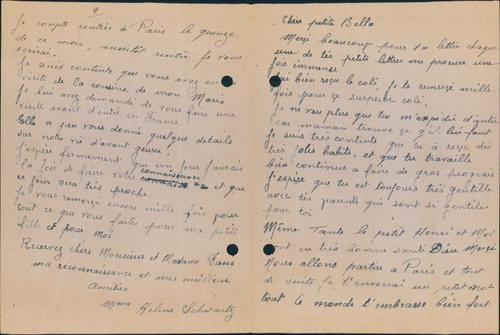 2
Je compte rentrée à Paris le quinze
de ce mois, aussitôt rentrée je vous
écrirai.
Je suis contente que vous avez eu
visite de la cousine de mon Maris
Je lui avez demandé de vous faire une
visite avant d'entré en France
Elle a peu vous donné quelque details
sur notre vie d'avant guerre.
J'espère fermement que un jour j'aurais
la joie de faire votre connaissance et que
ce jour sera très proche
Je vous remerçi encore mille fois pour
tout ce que vous faites pour ma petite
fille et pour Moi.
Recevez chers Moncieurs et Madame
ma reconnaissance et mes meilleur
Amitiés
Mme Helene Schwartz
Chère petite Bella
Merçi beaucoup pour ta lettre chaque
une de tes petites lettres me procure une
joie immense
J'ai bien reçu le coli, Je te remerçi mille
fois pour ce surpèrbe coli.
Je ne veu plus que tu m'expedié d'autre
car maman trouve ce qu'il lui faut
Je suis très contente que tu a reçu des
très jolis habits, et que tu travaille
bien continue a faire de gros prograis
J'espère que tu est toujours très gentille
avec tes parents qui sont si gentiles
pour toi
Mème Tante le petit Henri et Moi
sont en très bonne santé Dieu Merçi
Nous allons partire a Paris et tout
de suite je t'enverrai un petit mot
tout le monde t'embrasse bien fort.